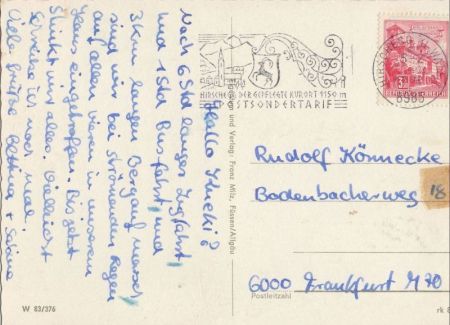 Hallo
Nach 6 Std langer Zugfahrt
und 1 Std Busfahrt und
3km langen Bergauf marsch
sind wir bei strömenden Regen
auf allen vieren in unserem
Haus eingetroffen. Bis jetzt
stinkt uns alles. Vielleicht
schreibe ich noch mal.
Viele Grüße Bettina +
W 83/376
Verlag: Franz Milz, Füssen/Allgäu
HIRSCHEGG DER GEPFLEGTE KURORT 1150 m
POSTSONDERTARIF
Rudolf Könnecke
Bodenbacherweg 18
6000 Frankfurt M 70
Postleitzahl
rk 8